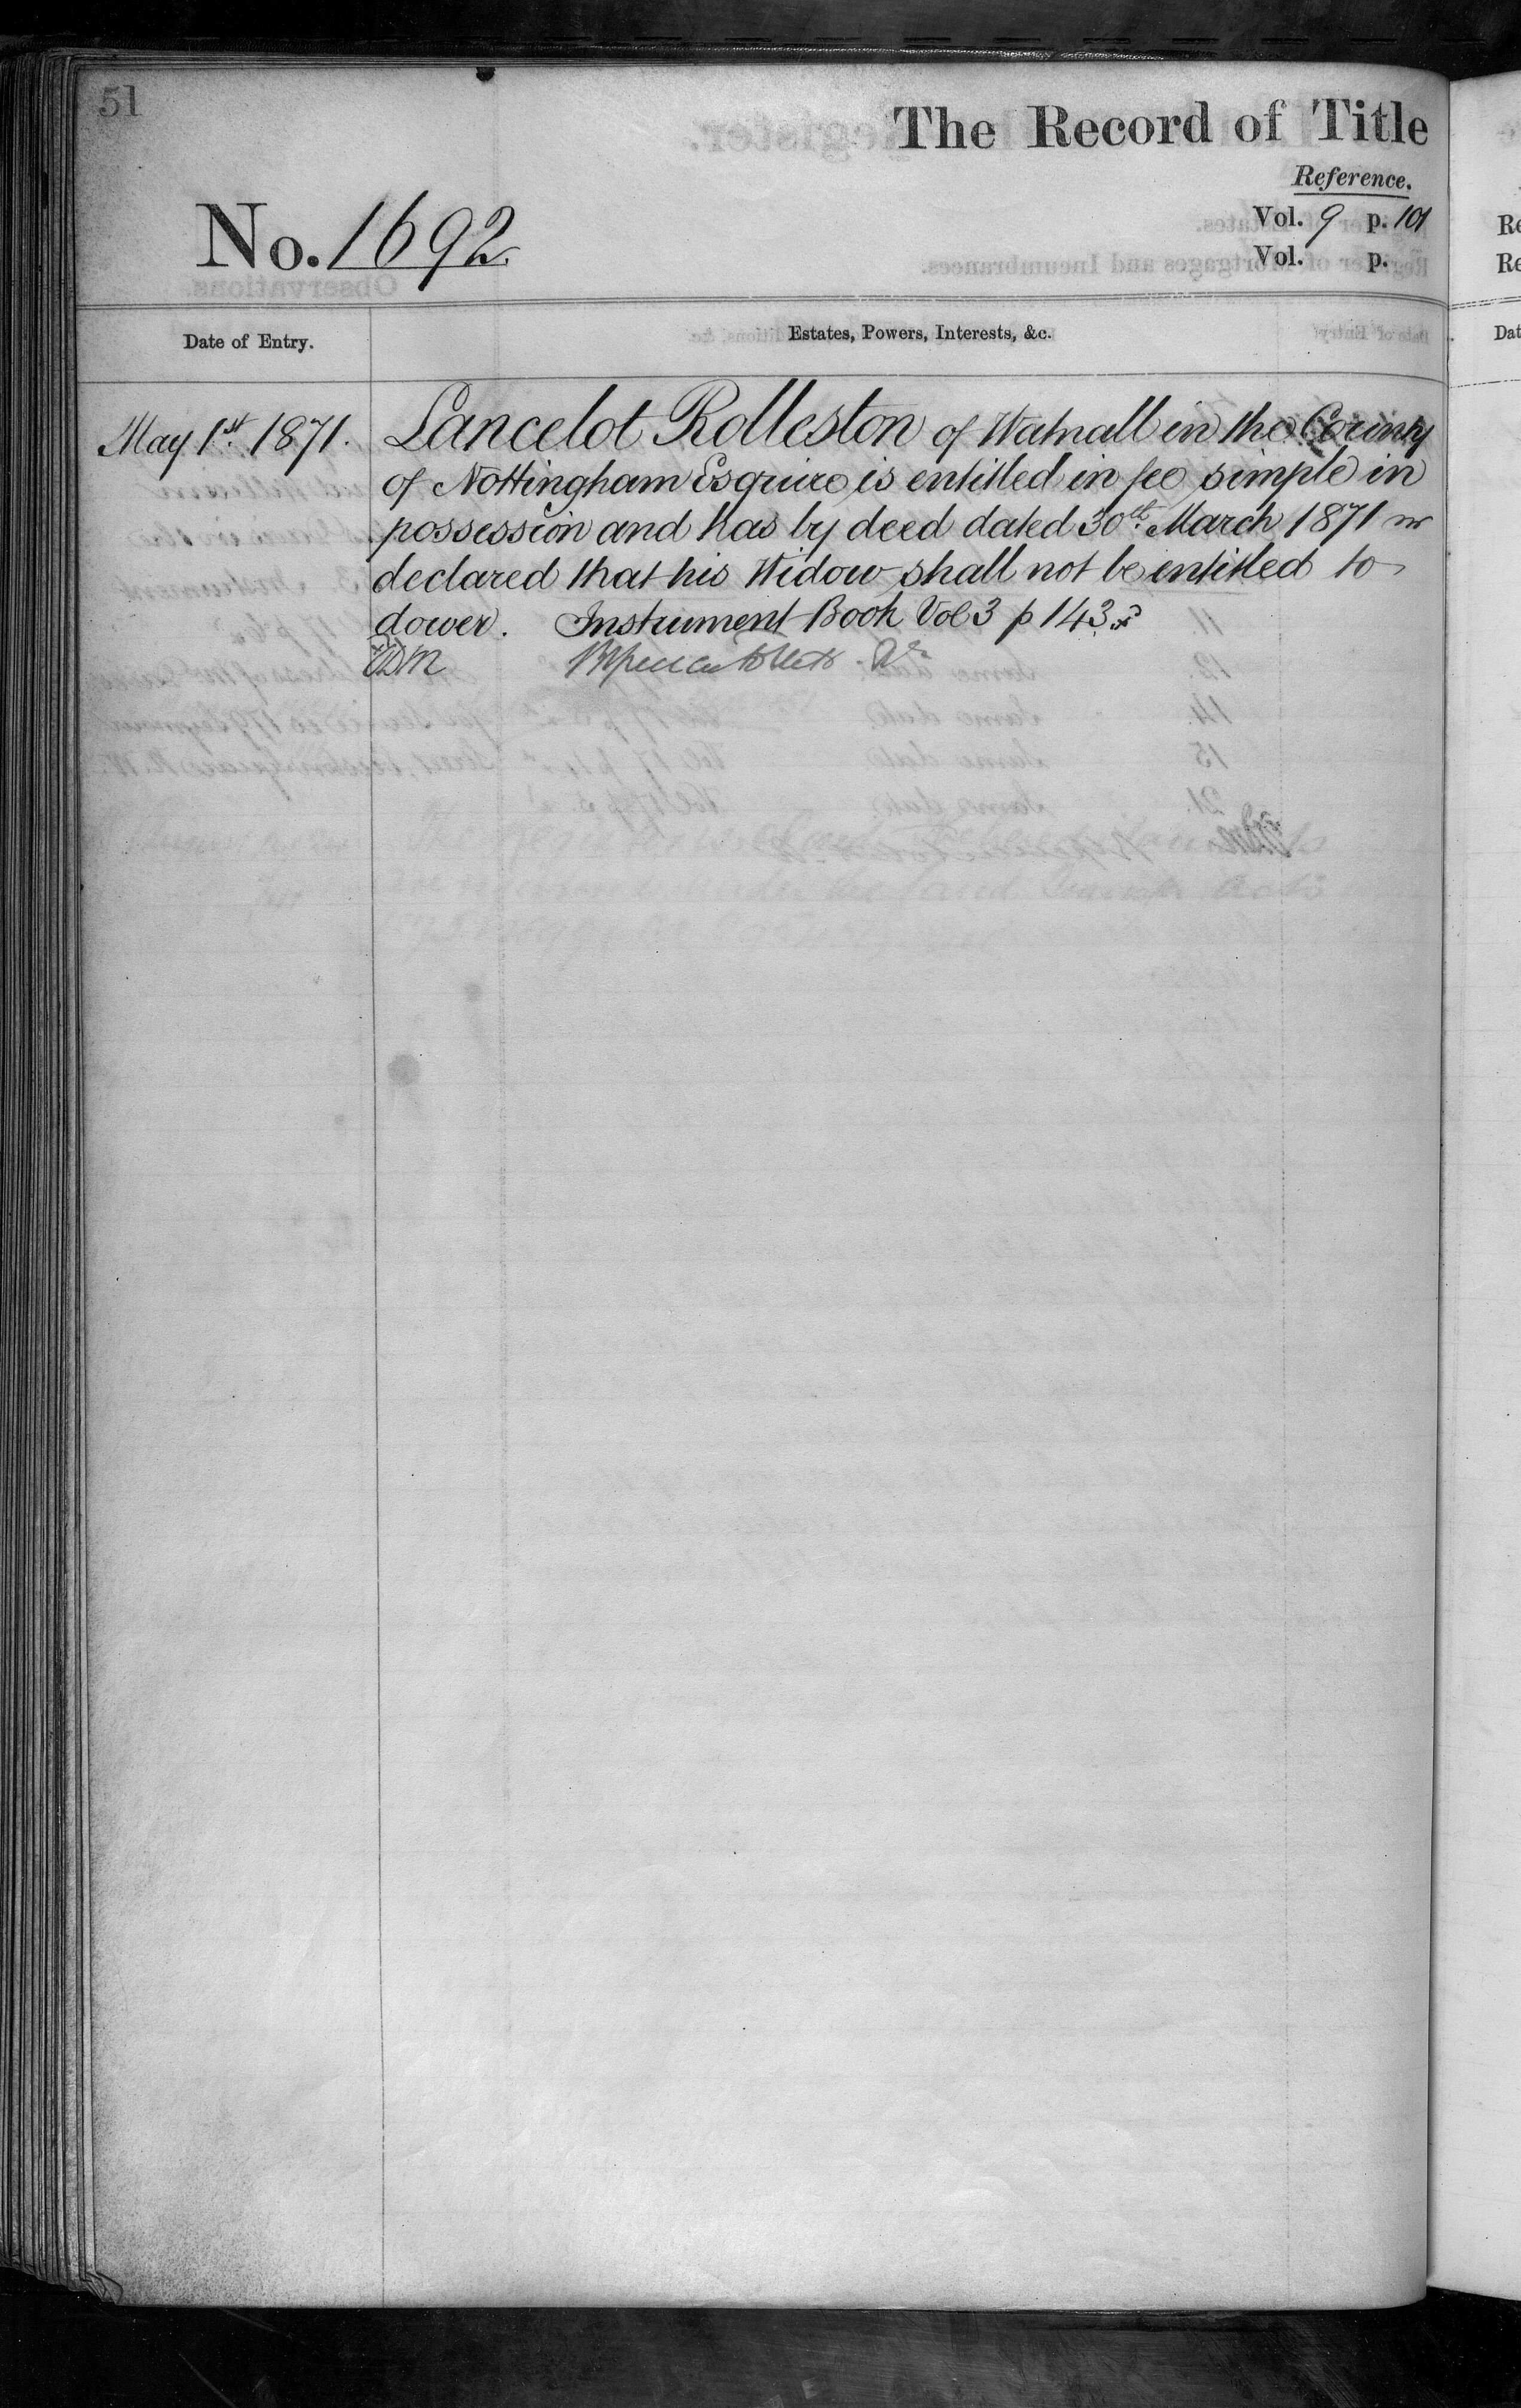 51
The Record of Title
Reference.
No. 1692.
Vol. 9 p. 101
Vol. p.
Date of Entry.
Estates, Powers, Interests, &c.
May 1st. 1871.
Lancelot Rolleston of Watnall in the County
of Nottingham Esquire is entitled in fee simple in
possession and has by deed dated 30th. March 1871
declared that his Widow shall not be entitled to
dower. Instrument Book Vol 3 p 143.
Re
Re
Dat